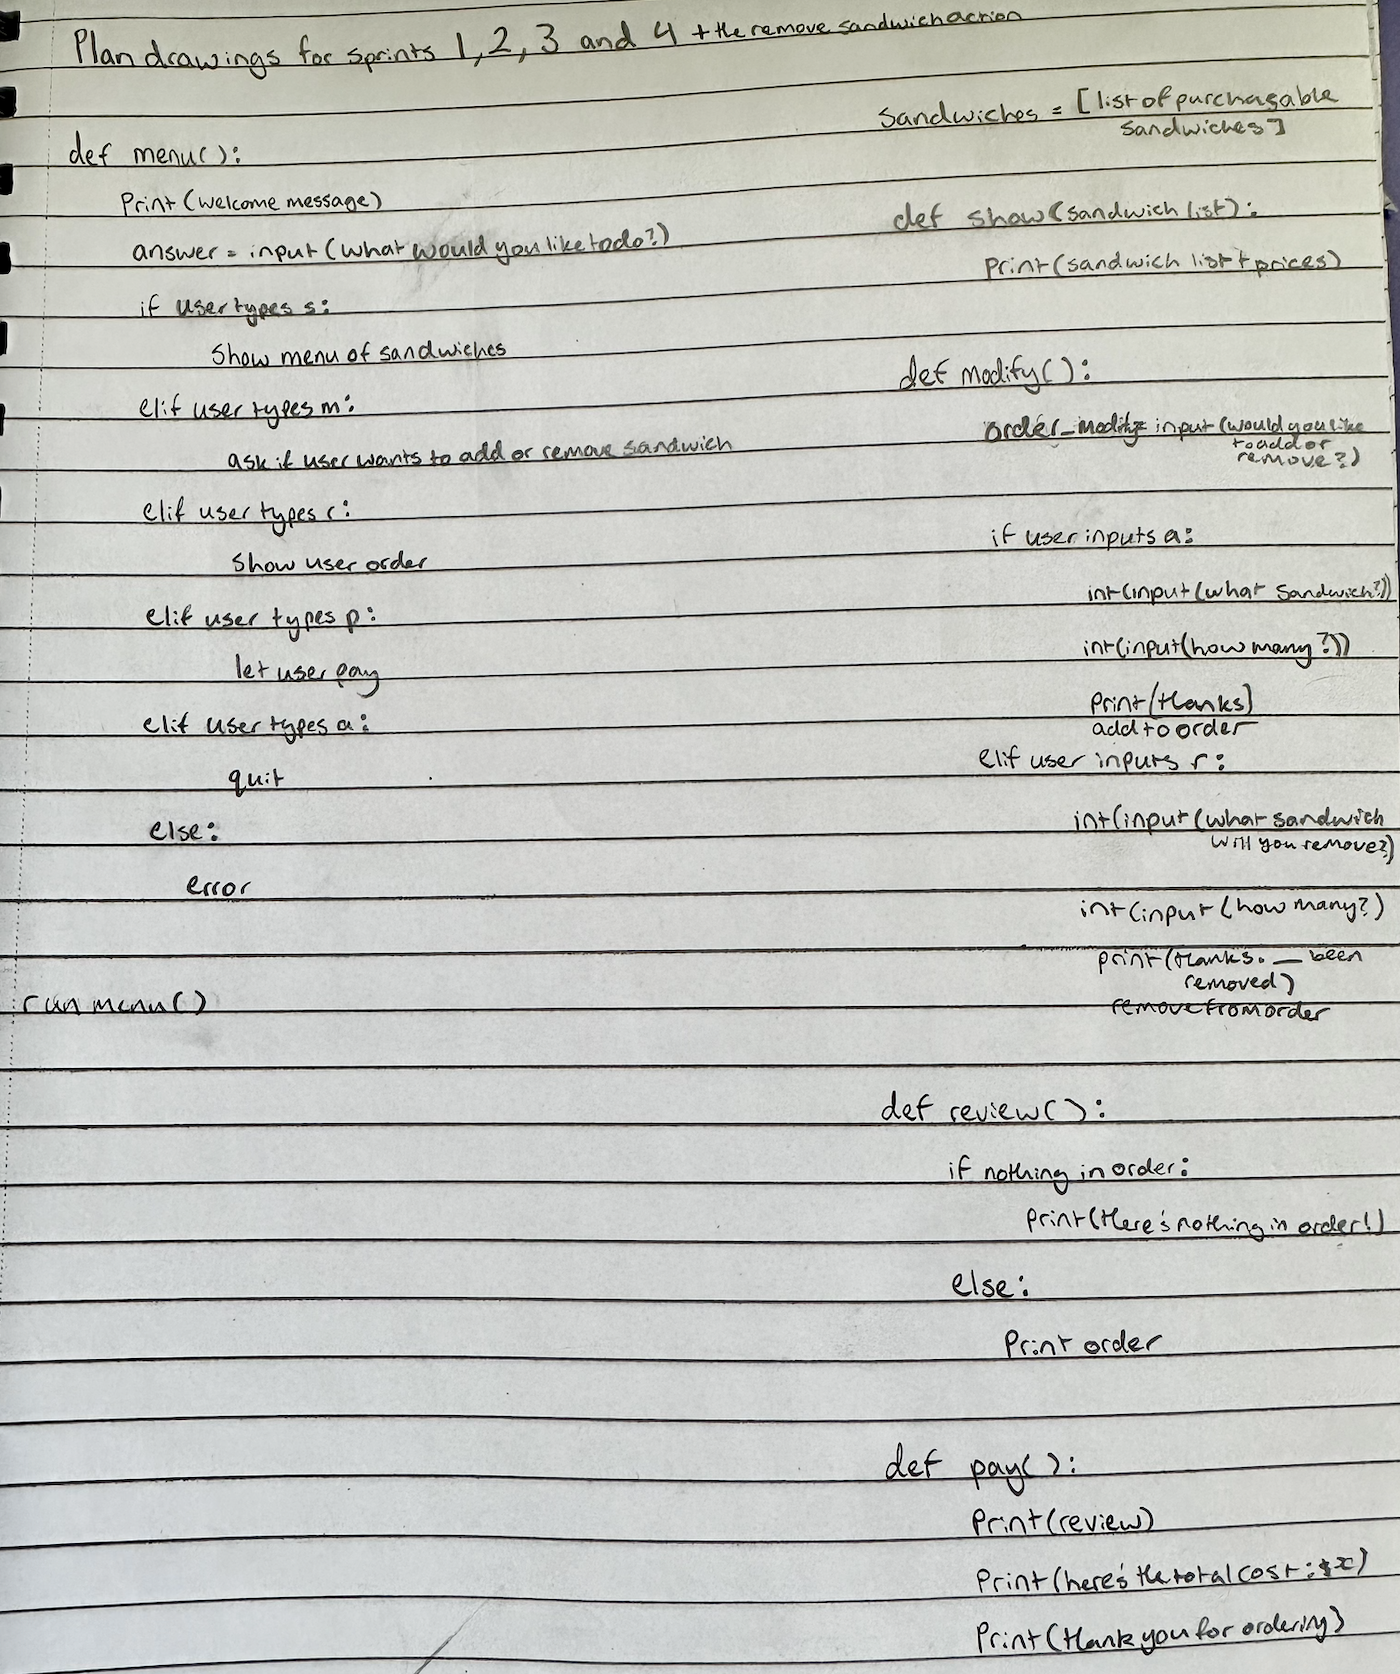 Plan drawings for sprints 1, 2, 3 and 4 + the remove sandwich action
def menu():
Print (welcome message)
answer = input (what would you like to do?)
if user types s:
Show menu of sandwiches
elif user types m:
ask if user wants to add or remove sandwich
elif user types r:
Show user order
elif user types p:
let user pay
elif user types a:
quit
else:
error
run menu()
Sandwiches = [list of purchasable
sandwiches]
def show(sandwich list):
Print (sandwich list + prices)
def modify():
order_modify= input (would you like
to add or
remove?)
if user inputs a:
int(input (what Sandwich?))
int(input(how many?))
Print(thanks)
add to order
elif user inputs r:
int(input (what sandwich
will you remove?)
int(input (how many?)
print(thanks. __ been
removed)
remove from order
def review():
if nothing in order:
Print(there's nothing in order!)
else:
Print order
def pay():
Print(review)
Print(here's the total cost: $x)
Print (thank you for ordering)